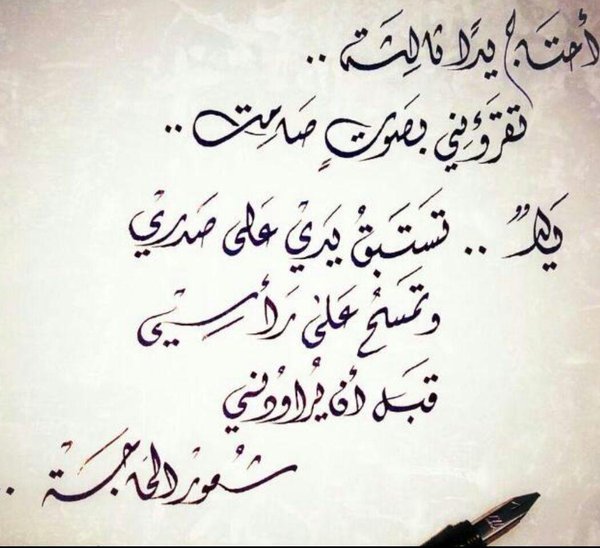 أحتاج يدًا ثالثة ..
تقرؤني بصوتٍ صامت ..
يدٌ .. تستبقُ يديْ على صدريْ
وتمسحُ على رأسيْ
قبل أن يُراودني
شعور الحاجة .